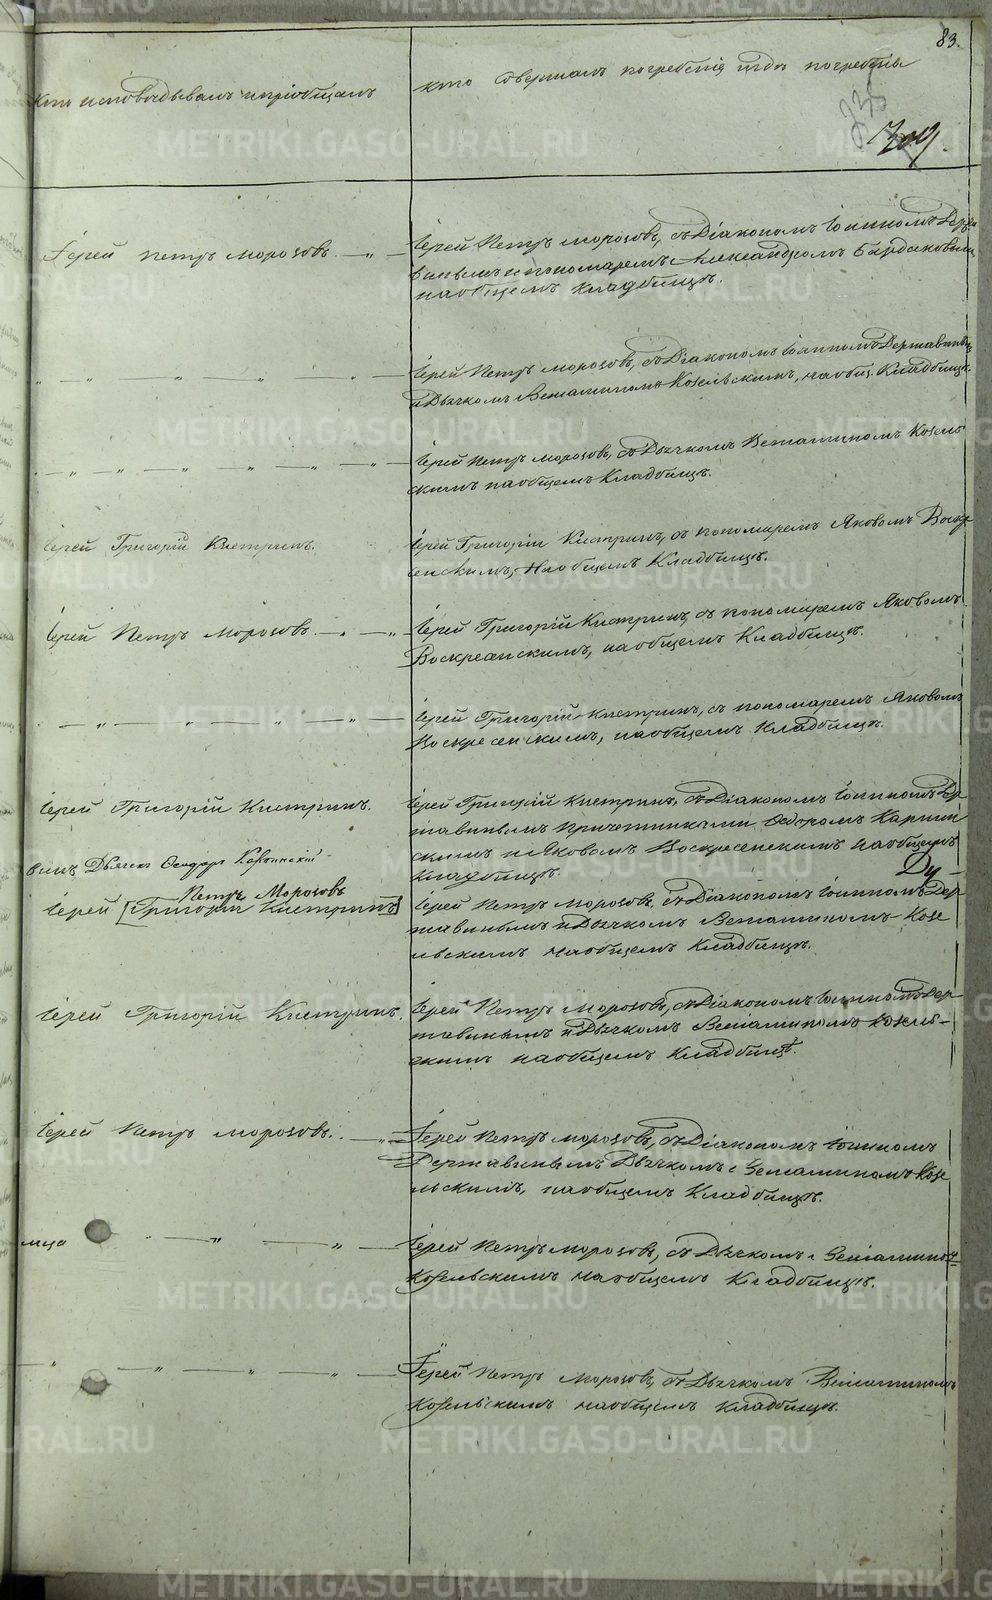 83.
Кто исповѣдывалъ и пріобщалъ
Кто совершалъ погребеніе и гдѣ погребены
309.
Іерей Петръ Морозовъ.
Іерей Петръ Морозовъ, съ Діакономъ Іоанномъ Держа
винымъ и пономаремъ Александромъ Бардаковымъ
на общемъ кладбищѣ.
Іерей Петръ Морозовъ, съ Діакономъ Іоанномъ Державинымъ
и Дьячкомъ Веніаминомъ Козельскимъ, на общ. Кладбищѣ.
Іерей Петръ Морозовъ, съ Дьячкомъ Веніаминомъ Козель
скимъ на общемъ Кладбищѣ.
Іерей Григорій Кистринъ.
Іерей Григорій Кистринъ, съ пономаремъ Яковомъ Воскре
сенскимъ, на общемъ Кладбищѣ.
Іерей Петръ Морозовъ.
Іерей Григорій Кистринъ, съ пономаремъ Яковомъ
Воскресенскимъ, на общемъ Кладбищѣ.
Іерей Григорій Кистринъ, съ пономаремъ Яковомъ
Воскресенскимъ, на общемъ Кладбищѣ.
Іерей Григорій Кистринъ.
Іерей Григорій Кистринъ, съ Діакономъ Іоанномъ Дер
жавинымъ причетниками Ѳедоромъ Карпин
скимъ и Яковомъ Воскресенскимъ на общемъ
Кладбищѣ.
Дьячекъ Ѳеодоръ Карпинскій
Петръ Морозовъ
Іерей [Григорій Кистринъ]
Іерей Петръ Морозовъ, съ Діакономъ Іоанномъ Дер
жавинымъ и Дьячкомъ Веніаминомъ Козе
льскимъ на общемъ Кладбищѣ.
Іерей Григорій Кистринъ.
Іерей Петръ Морозовъ, съ Діакономъ Іоанномъ Дер
жавинымъ и Дьячкомъ Веніаминомъ Козель-
скимъ на общемъ Кладбищѣ.
Іерей Петръ Морозовъ.
Іерей Петръ Морозовъ, съ Діакономъ Іоанномъ
Державинымъ Дьячкомъ Веніаминомъ Козе
льскимъ, на общемъ Кладбищѣ.
Іерей Петръ Морозовъ, съ Дьячкомъ Веніамином
Козельскимъ на общемъ Кладбищѣ.
Іерей Петръ Морозовъ, съ Дьячкомъ Веніаминомъ
Козельскимъ на общемъ Кладбищѣ.
METRIKI.GASO-URAL.RU